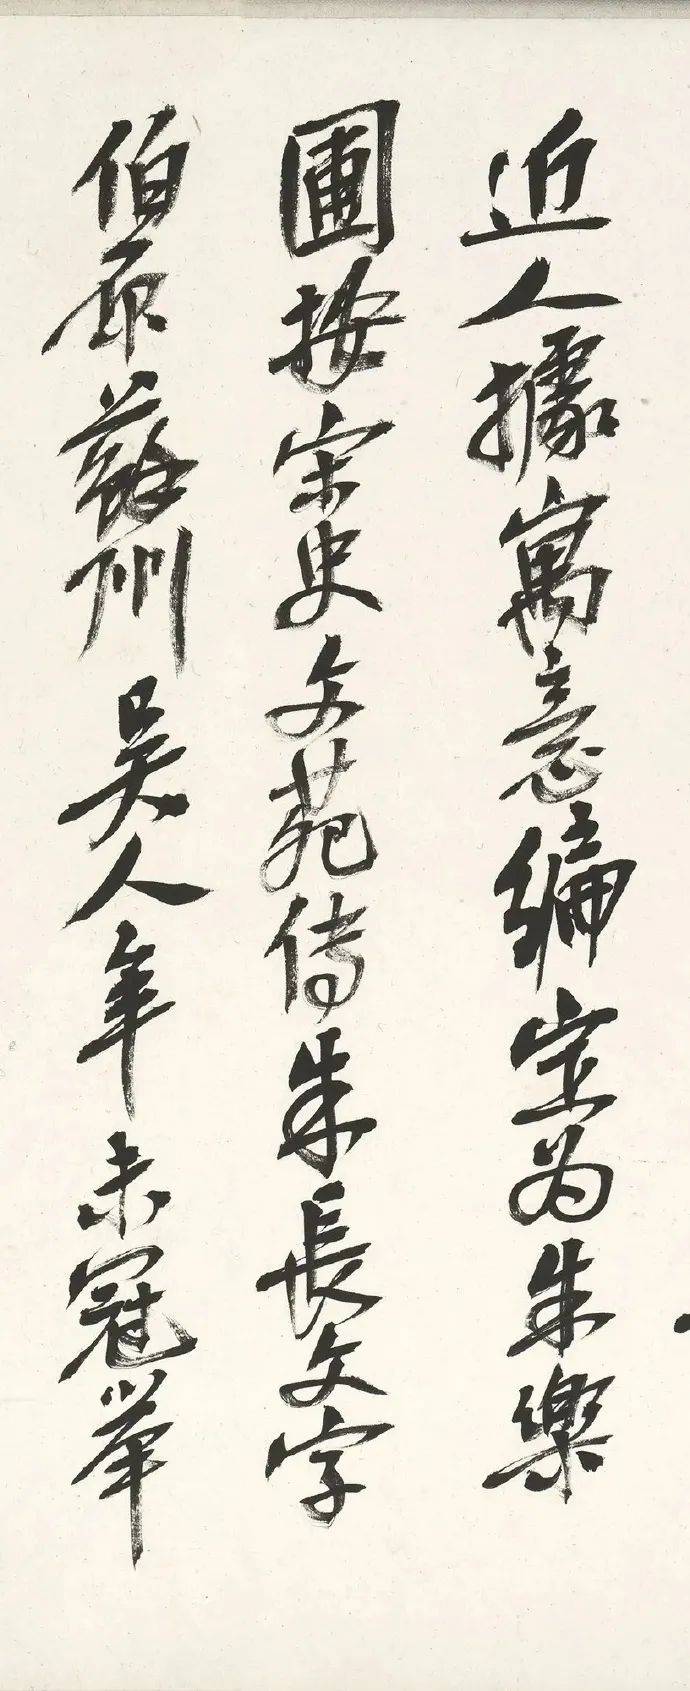 近人據寓意編定為朱樂
圃按宋史文苑傳朱長文字
伯原蘇州吳人年未冠舉